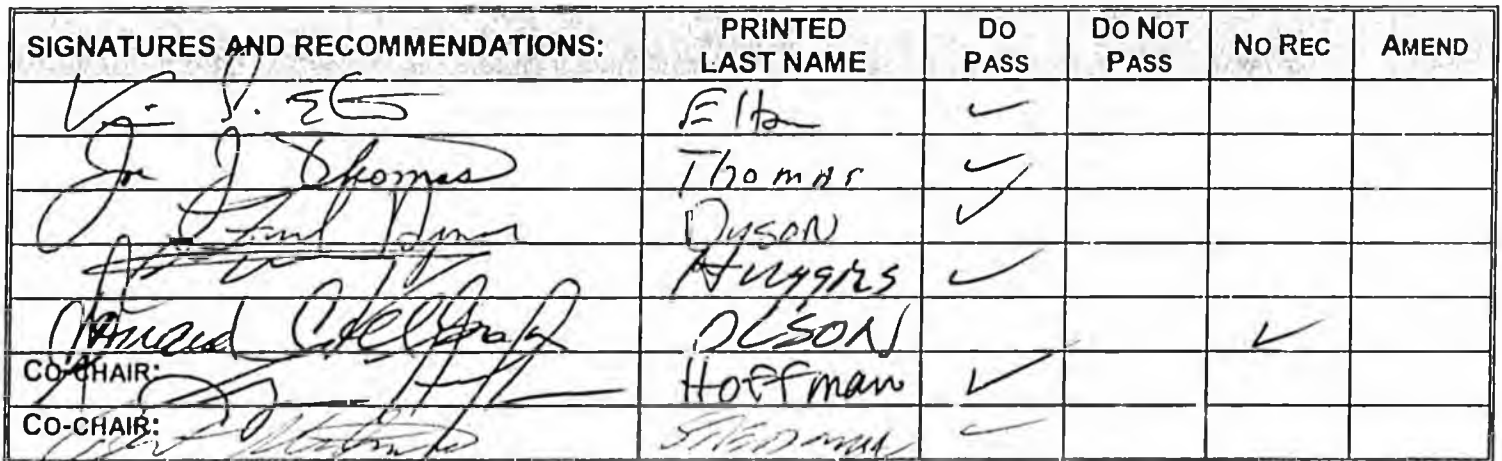 SIGNATURES AND RECOMMENDATIONS: PRINTED LAST NAME DO PASS DO NOT PASS NO REC AMEND
Elton ✓
Joe J Thomas Thomas ✓
Fred Dyson Dyson ✓
Huggins ✓
OLSON ✓
CO-CHAIR: Hoffman ✓
CO-CHAIR: Stedman ✓